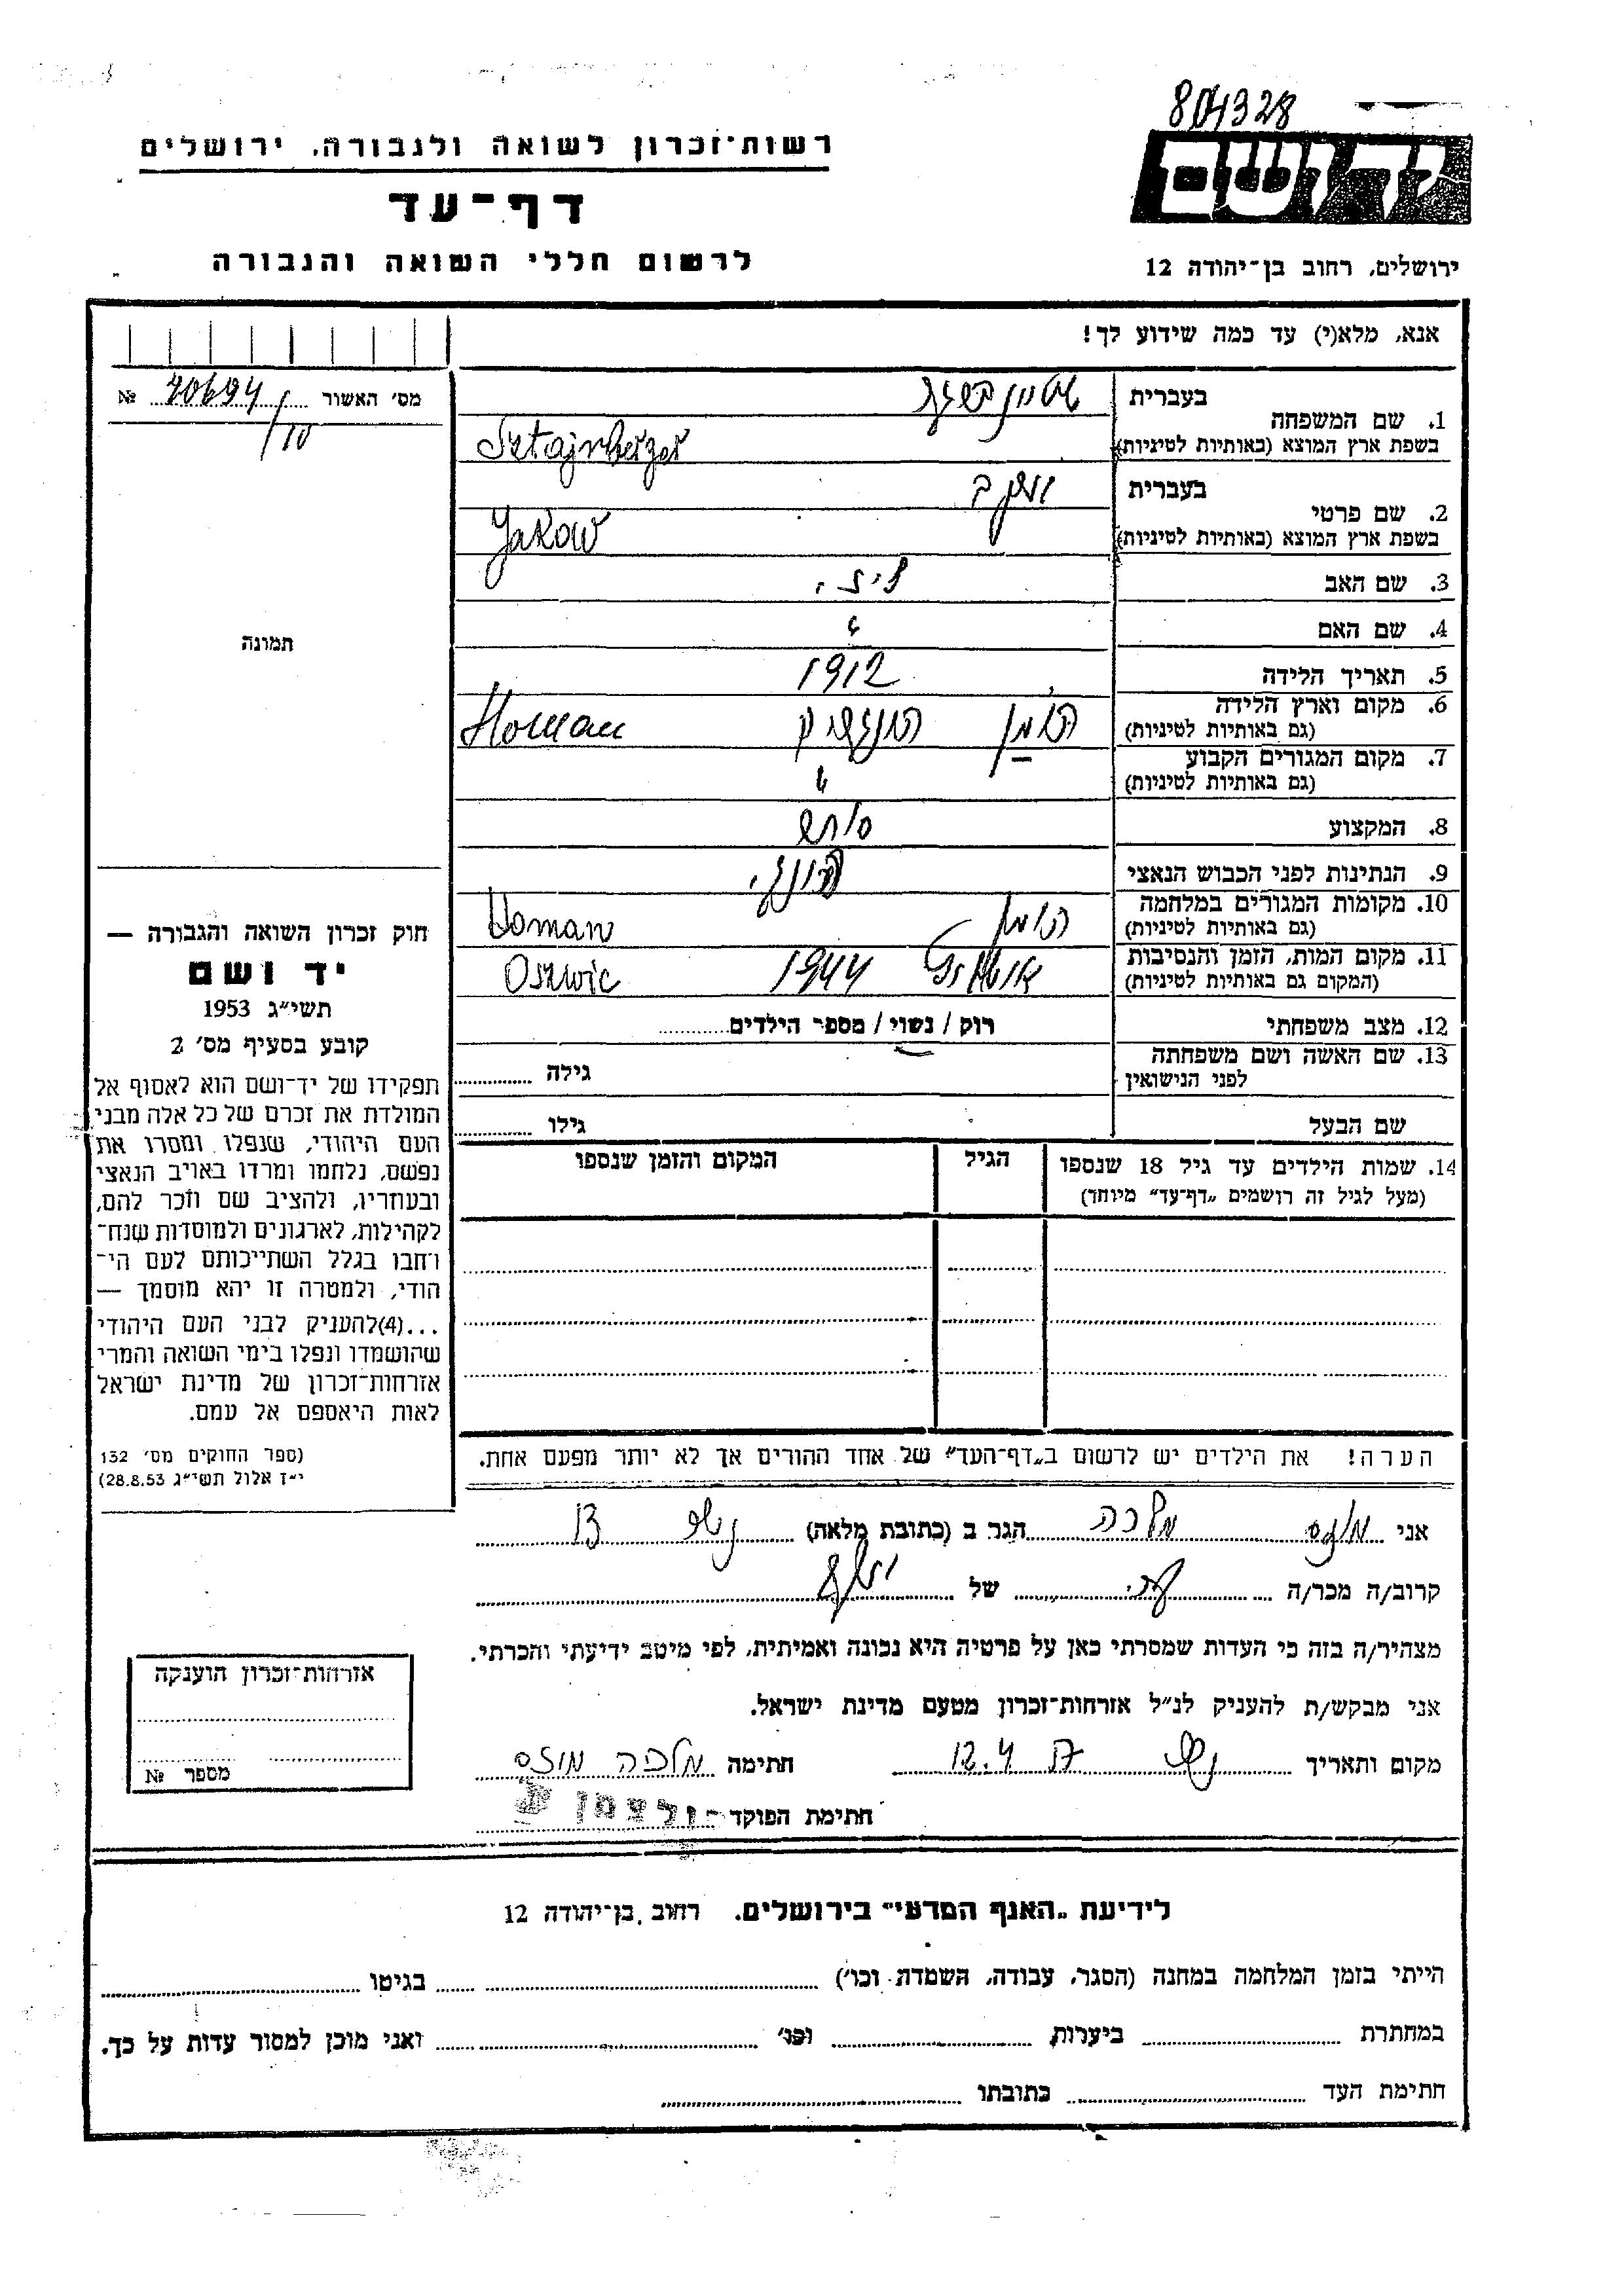 804328
יד ושם
רשות־זכרון לשואה ולגבורה, ירושלים
דף־עד
לרשום חללי השואה והגבורה
ירושלים, רחוב בן־יהודה 12
אנא, מלא(י) עד כמה שידוע לך!
מס׳ האשור № 70694/10
1. שם המשפחה
בעברית
בשפת ארץ המוצא (באותיות לטיניות) Sztajnberger
2. שם פרטי
בעברית יעקב
בשפת ארץ המוצא (באותיות לטיניות) Jakow
3. שם האב
4. שם האם
5. תאריך הלידה 1912
6. מקום וארץ הלידה
(גם באותיות לטיניות) הומן Homan
7. מקום המגורים הקבוע
(גם באותיות לטיניות)
8. המקצוע סוחר
9. הנתינות לפני הכבוש הנאצי
10. מקומות המגורים במלחמה
(גם באותיות לטיניות) הומן Homan
11. מקום המות, הזמן והנסיבות
(המקום גם באותיות לטיניות) 1944 Oszwic
12. מצב משפחתי רוק / נשוי / מספר הילדים
13. שם האשה ושם משפחתה
לפני הנישואין
גילה
שם הבעל גילו
14. שמות הילדים עד גיל 18 שנספו
(מעל לגיל זה רושמים „דף־עד״ מיוחד)
הגיל
המקום והזמן שנספו
הערה! את הילדים יש לרשום ב„דף־העד״ של אחד ההורים אך לא יותר מפעם אחת.
תמונה
חוק זכרון השואה והגבורה —
יד ושם
תשי״ג 1953
קובע בסעיף מס׳ 2
תפקידו של יד־ושם הוא לאסוף אל
המולדת את זכרם של כל אלה מבני
העם היהודי, שנפלו ומסרו את
נפשם, נלחמו ומרדו באויב הנאצי
ובעוזריו, ולהציב שם וזכר להם,
לקהילות, לארגונים ולמוסדות שנח־
רחבו בגלל השתייכותם לעם הי־
הודי, ולמטרה זו יהא מוסמך —
...(4)להעניק לבני העם היהודי
שהושמדו ונפלו בימי השואה והמרי
אזרחות־זכרון של מדינת ישראל
לאות היאספם אל עמם.
(ספר החוקים מס׳ 132
י״ז אלול תשי״ג 28.8.53)
אני מוזס מלכה הגר ב (כתובת מלאה)
קרוב/ה מכר/ה של
מצהיר/ה בזה כי העדות שמסרתי כאן על פרטיה היא נכונה ואמיתית, לפי מיטב ידיעתי והכרתי.
אני מבקש/ת להעניק לנ״ל אזרחות־זכרון מטעם מדינת ישראל.
מקום ותאריך 12.4 חתימה מלכה מוזס
חתימת הפוקד
אזרחות־זכרון הוענקה
מספר №
לידיעת „האגף המדעי״ בירושלים, רחוב בן־יהודה 12
הייתי בזמן המלחמה במחנה (הסגר, עבודה, השמדת וכו׳) בגיטו
במחתרת ביערות וכו׳ ואני מוכן למסור עדות על כך.
חתימת העד כתובתו